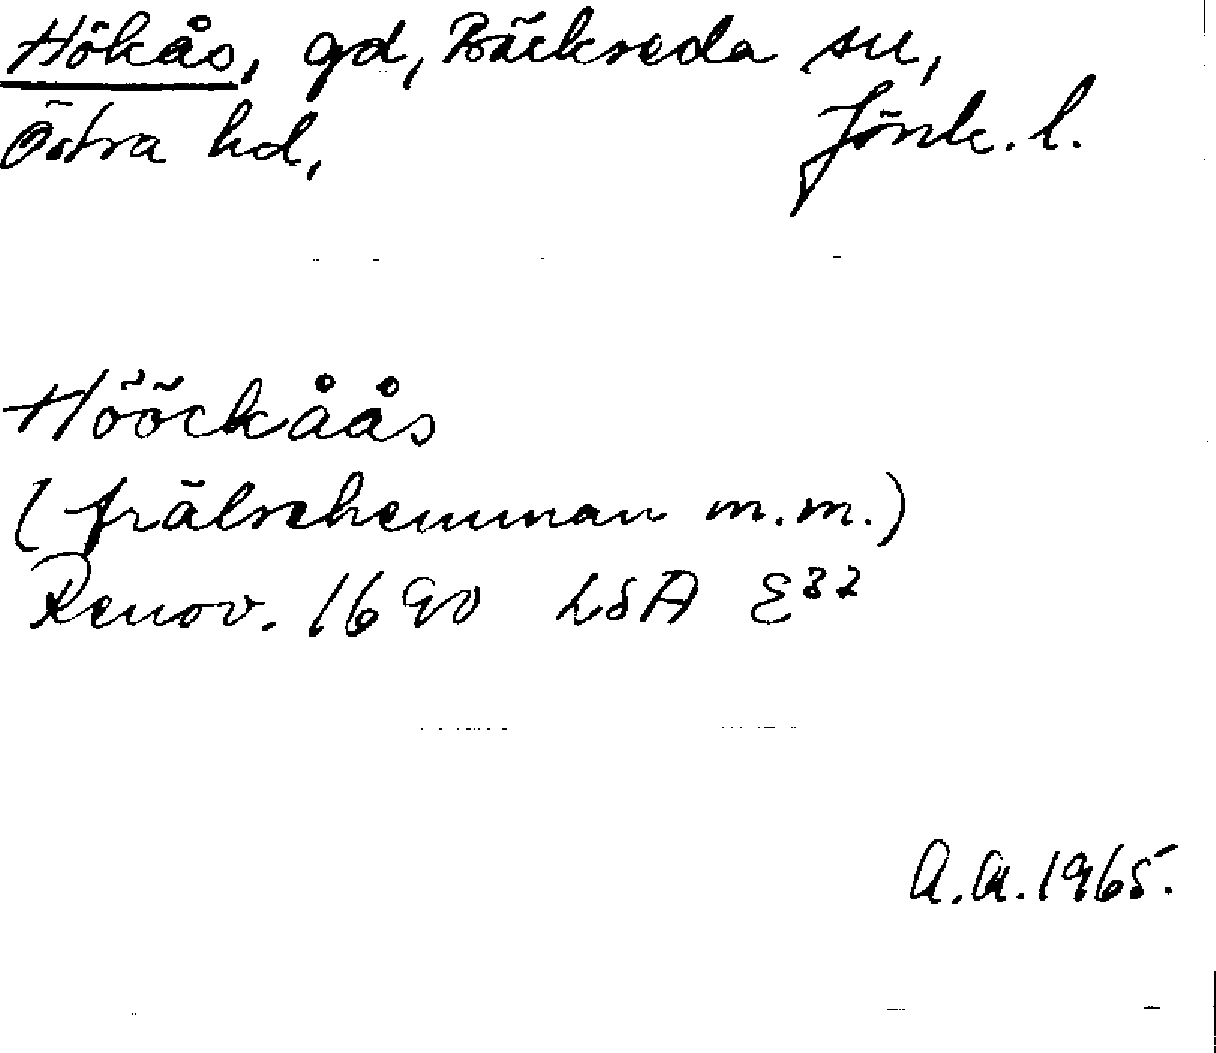 Hökås, gd, Bäckseda sn,
Östra hd, Jönk. l.
Hööckåås
(frälsehemman m.m.)
Renov. 1690 LSA E32
A.A. 1965.